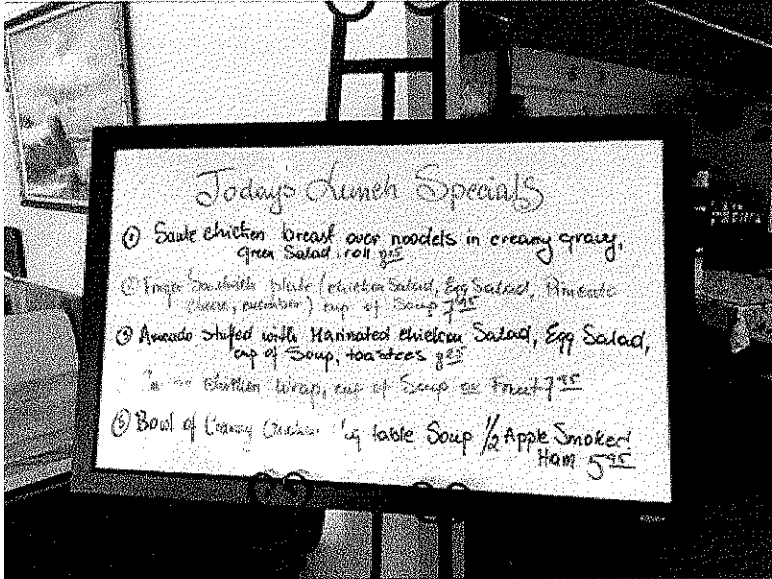 Today's Lunch Specials
① Saute chicken breast over noodels in creamy gravy,
green Salad, roll 8⁹⁵
② Finger Sandwich plate (chicken Salad, Egg Salad, Pimento
cheese, cucumber) cup of Soup 7⁹⁵
③ Avocado stuffed with Marinated chicken Salad, Egg Salad,
cup of Soup, toastees 8⁹⁵
chicken Wrap, cup of Soup or Fruit 7⁹⁵
⑤ Bowl of Creamy Chicken table Soup 1/2 Apple Smoked
Ham 5⁹⁵